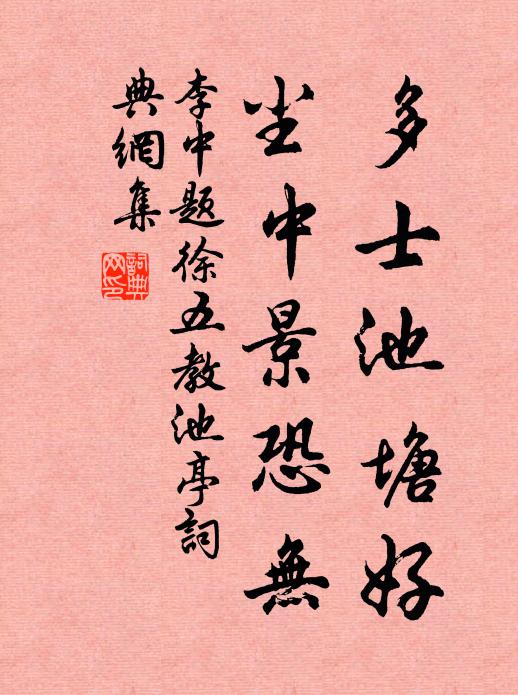 多士池塘好
尘中景恐無
李中題徐五教池亭詞
典網集
詞典網印